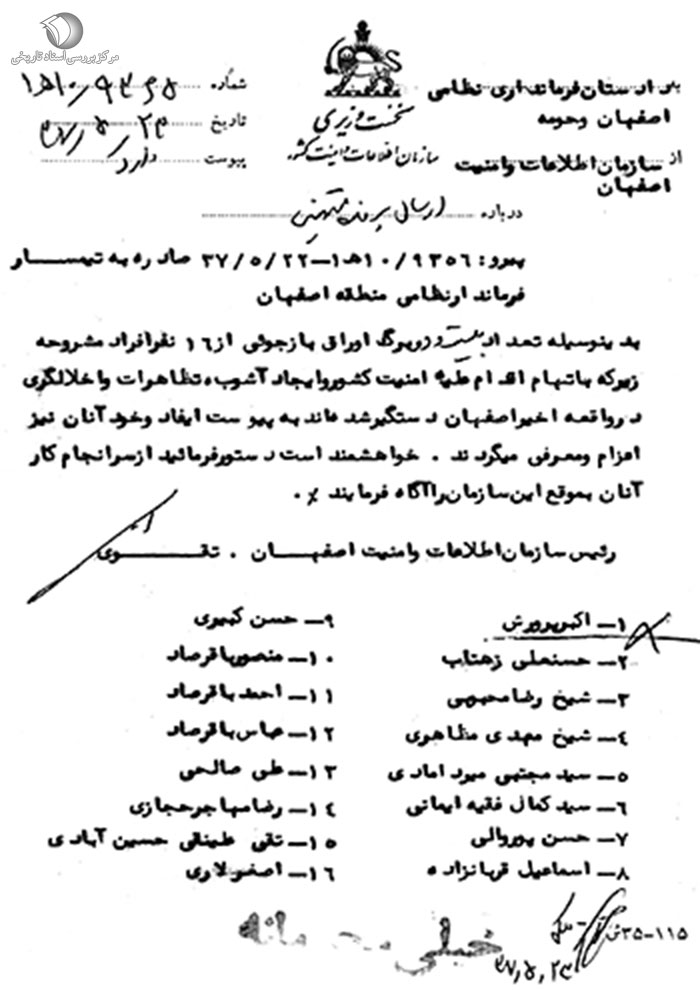 مرکز بررسی اسناد تاریخی
بـه دادستان فرمانداری نظامی
اصفهان وحومه
از سازمان اطلاعات وامنیت
اصفهان
نخست وزیری
سازمان اطلاعات و امنیت کشور
شماره ۹۳۶۵/۱۰ه‍۱
تاریخ ۳۷/۵/۲۳
پیوست دارد
درباره ارسال پرونده متهمین
پیرو: ۹۳۵۶/۱۰ه‍۱–۳۷/۵/۲۲ صادره به تیمسار
فرماندار نظامی منطقه اصفهان
بدینوسیله تعداد بیست و دو برگ اوراق بازجوئی از ۱۶ نفر افراد مشروحه
زیر که باتهام اقدام علیه امنیت کشور وایجاد آشوب، تظاهرات واخلالگری
در واقعه اخیر اصفهان دستگیر شده‌اند به پیوست ایفاد وخود آنان نیز
اعزام ومعرفی میگردند . خواهشمند است دستور فرمائید از سرانجام کار
آنان بموقع این سازمان را آگاه فرمایند ٪.
رئیس سازمان اطلاعات وامنیت اصفهان . تقوی
۱– اکبر پرورش
۲– حسنعلی زهتاب
۳– شیخ رضا محبهی
۴– شیخ مهدی مظاهری
۵– سید مجتبی میردامادی
۶– سید کمال فقیه ایمانی
۷– حسن پوروالی
۸– اسماعیل قربانزاده
۹– حسن کبیری
۱۰– منصور باقرصاد
۱۱– احمد باقرصاد
۱۲– عباس باقرصاد
۱۳– علی صالحی
۱۴– رضا مهاجر حجازی
۱۵– تقی علینقی حسین آبادی
۱۶– اصغر لاری
۳۵–۱۱۵
۳۷/۵/۲۳
خیلی محرمانه